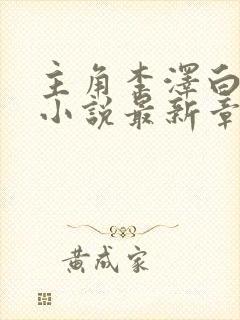 主角李澤白
小說最新章
黃成家